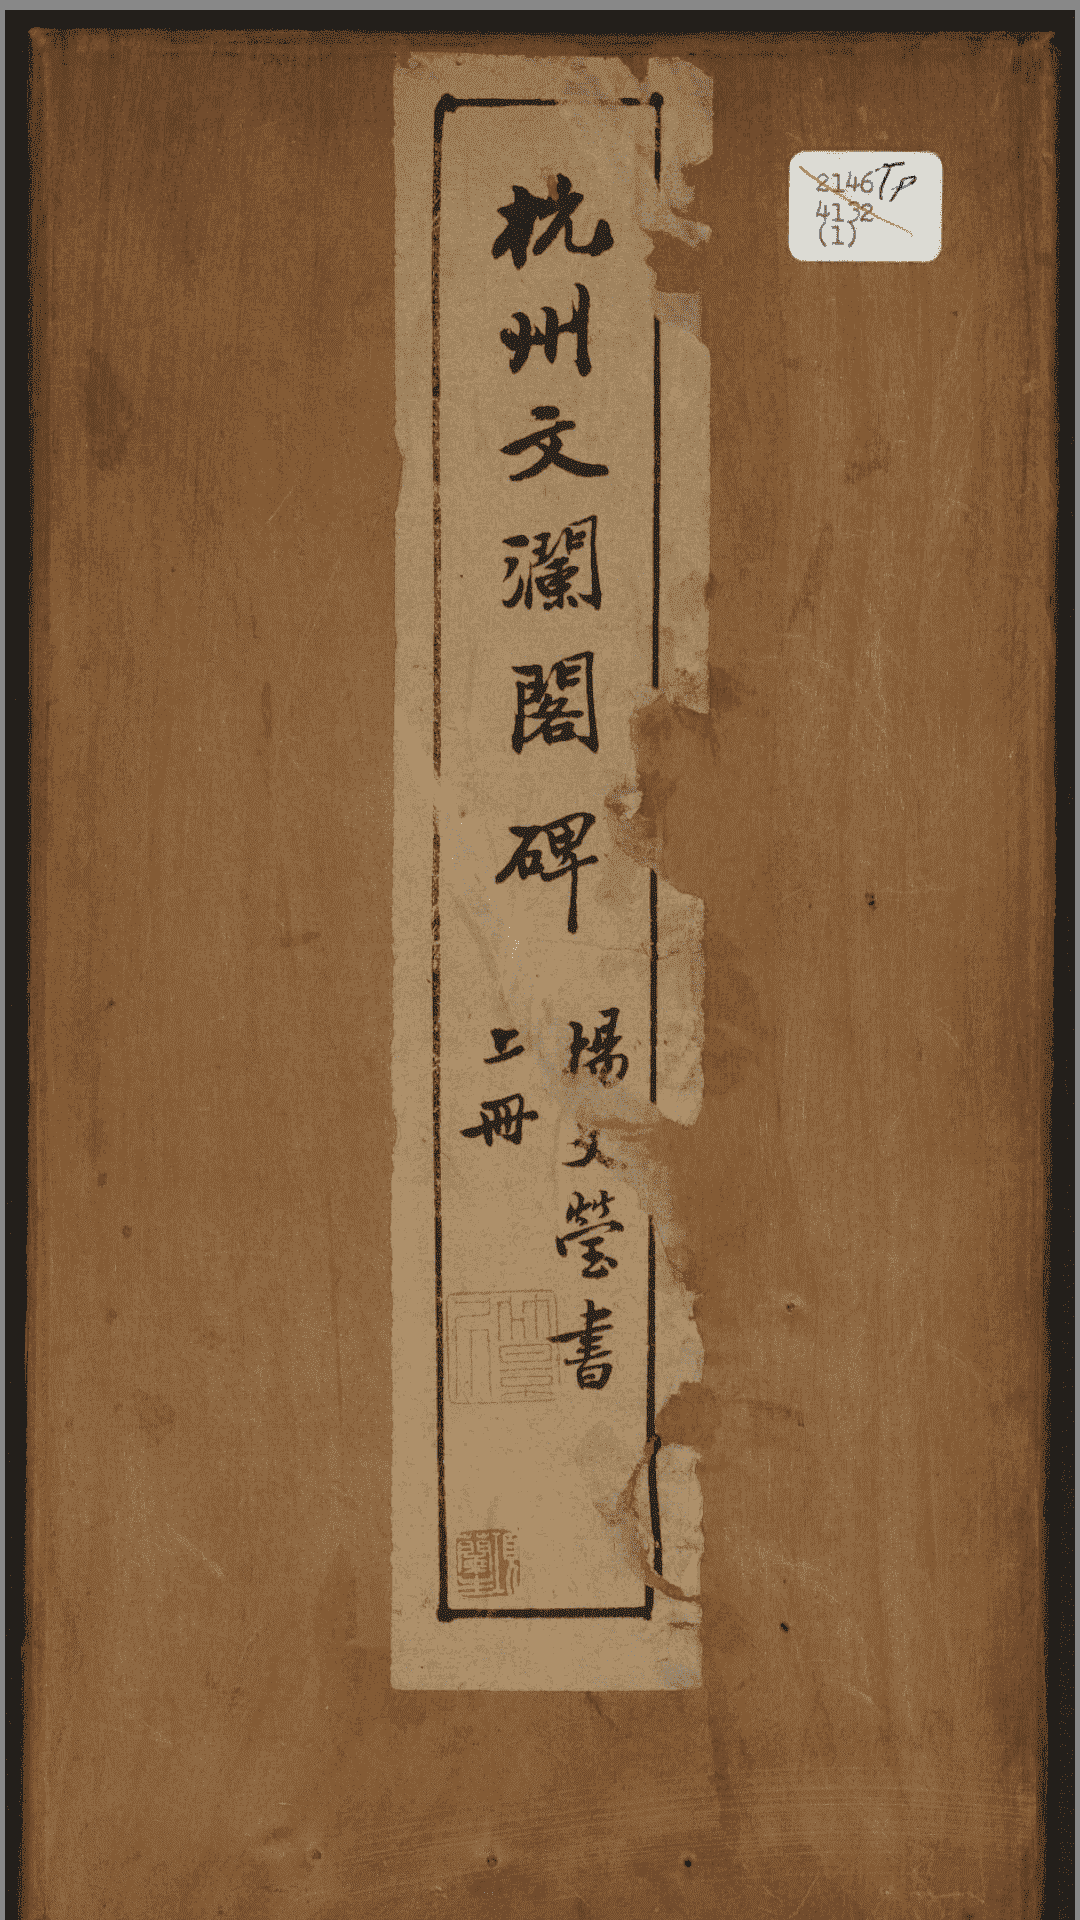 杭州文瀾閣碑
楊文瑩書
上冊
2146 Tp
4132
(1)